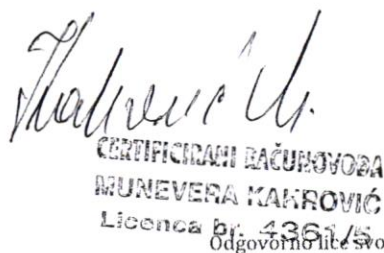 CERTIFICIRANI RAČUNOVOĐA
MUNEVERA KAKROVIĆ
Licenca br. 4361/5
Odgovorno lice svo